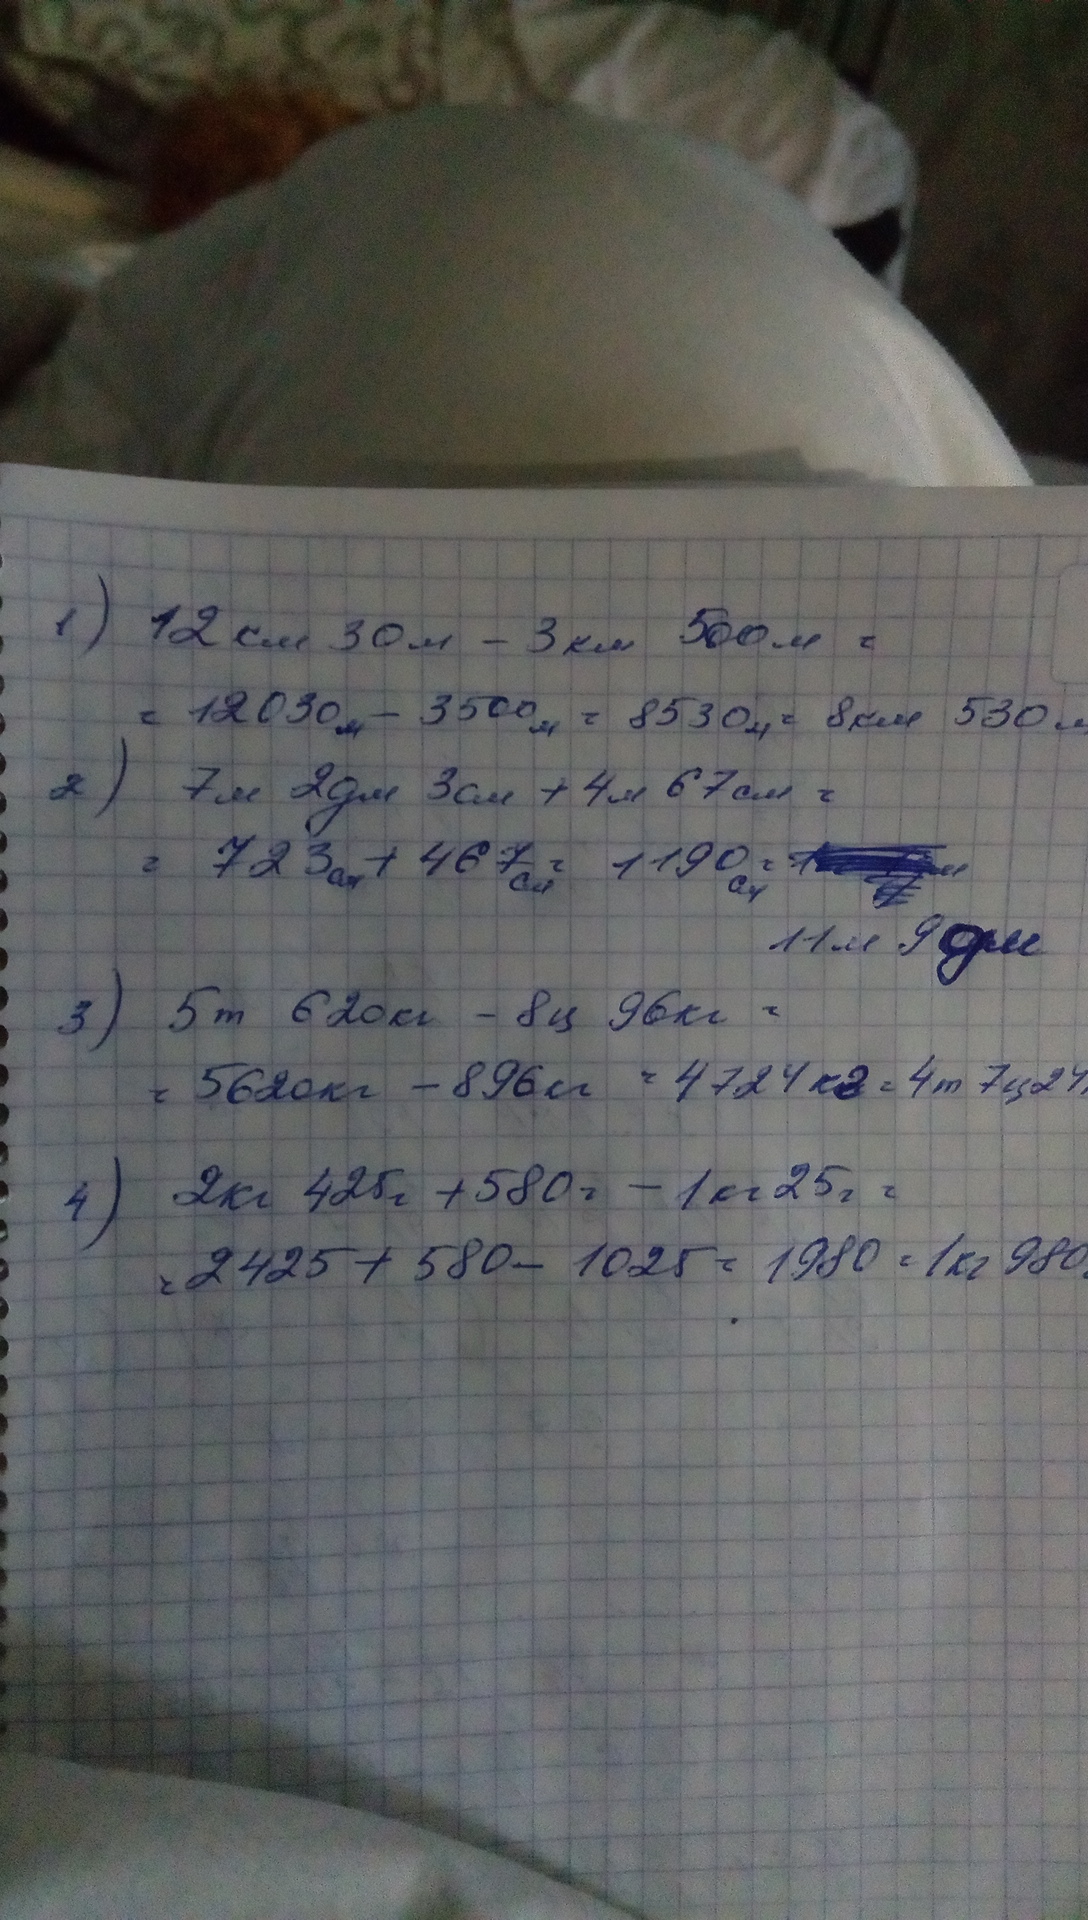 1) 12км 30м - 3км 500м =
= 12030м - 3500м = 8530м = 8км 530м
2) 7м 2дм 3см + 4м 67см =
= 723см + 467см = 1190см =
11м 9дм
3) 5т 620кг - 8ц 96кг =
= 5620кг - 896кг = 4724кг = 4т 7ц 24
4) 2кг 425г + 580г - 1кг 25г =
= 2425 + 580 - 1025 = 1980 = 1кг 980